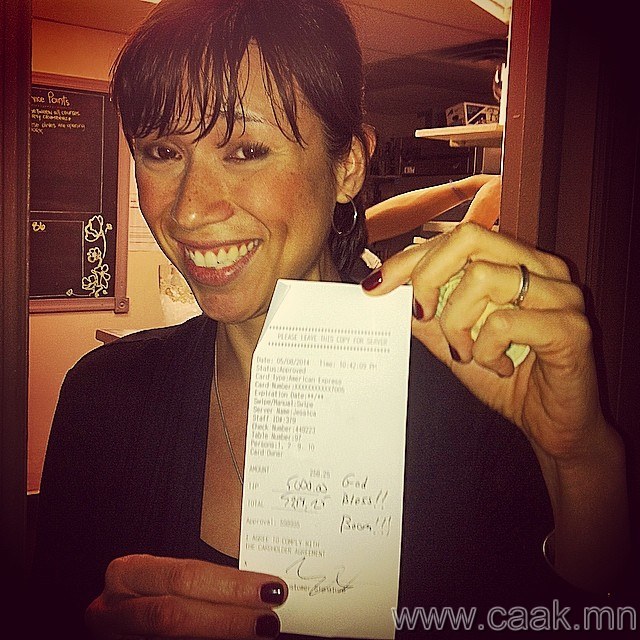 PLEASE LEAVE THIS COPY FOR SERVER
Date: 05/08/2014 Time: 10:42:09 PM
Status:Approved
Card Type:American Express
Card Number:XXXXXXXXXXX7005
Expiration Date:##/##
Swipe/Manual:Swipe
Server Name:Jessica
Staff ID#:379
Check Number:440223
Table Number:97
Card Owner
AMOUNT 259.25
TIP 5000.00
TOTAL
God
Bless!!
Boom!!!
Approval:
I AGREE TO COMPLY WITH
THE CARDHOLDER AGREEMENT
Customer Signature
Points
www.caak.mn